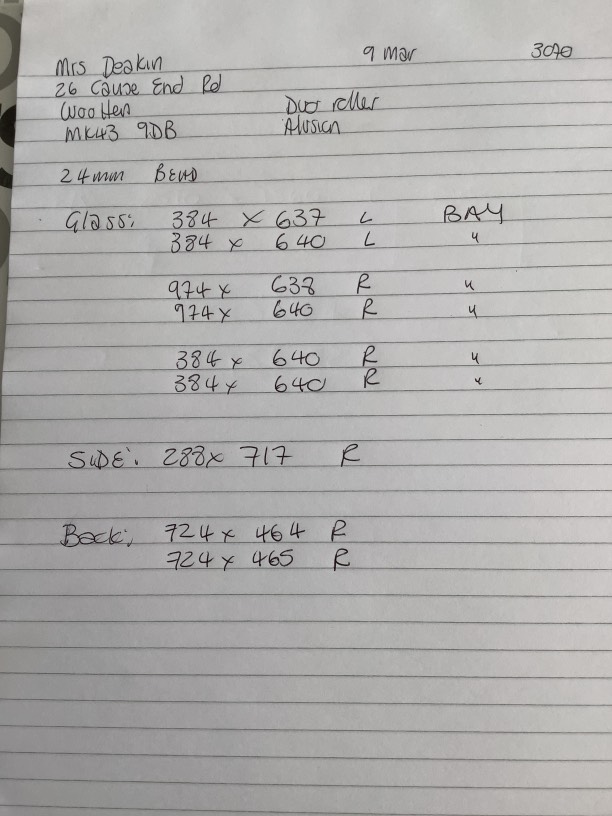 Mrs Deakin 9 Mar 3040
26 Cause End Rd
Wootten Duo roller
MK43 9DB Alusion
24mm BEAD
Glass: 384 x 637 L BAY
384 x 640 L "
974 x 638 R "
974 x 640 R "
384 x 640 R "
384 x 640 R "
SIDE: 288 x 717 R
Back: 724 x 464 R
724 x 465 R